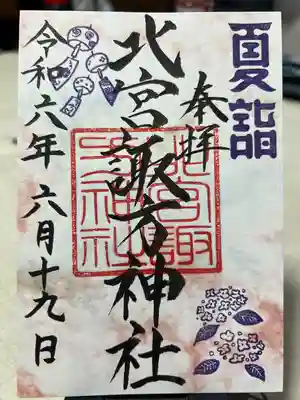 夏詣
奉拝
北宮諏方神社
北宮諏
方神社
令和六年 六月十九日